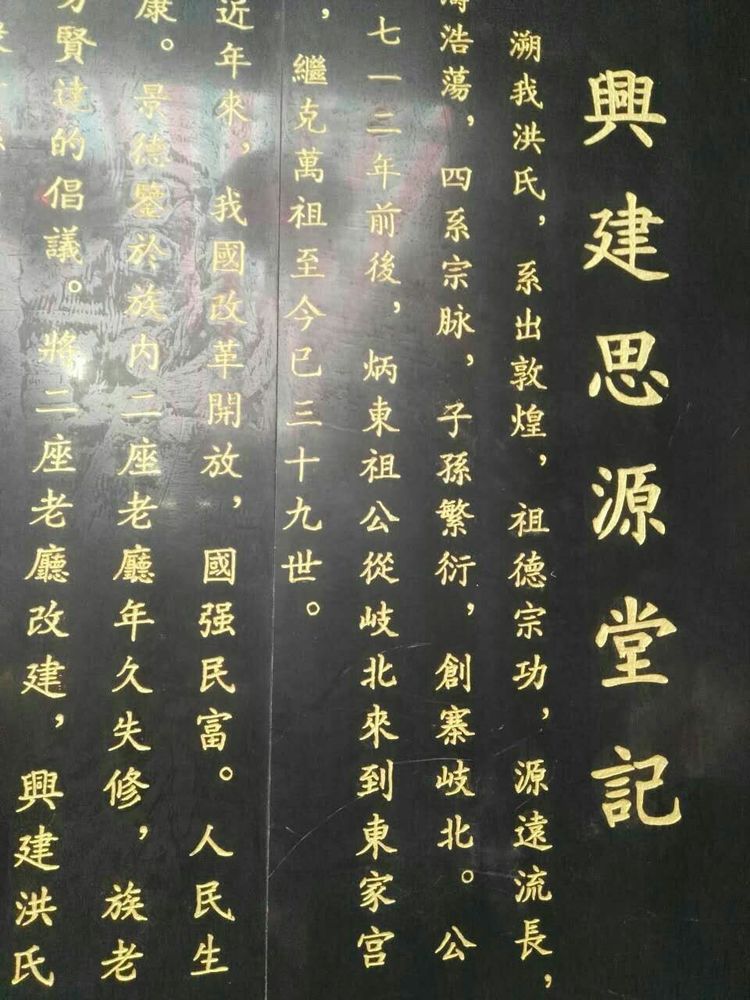 興建思源堂記
溯我洪氏，系出敦煌，祖德宗功，源遠流長，
浩蕩，四系宗脉，子孫繁衍，創寨岐北。公
七一二年前後，炳東祖公從岐北來到東家宮
，繼克萬祖至今已三十九世。
近年來，我國改革開放，國强民富。人民生
康。景德鑒於族内二座老廳年久失修，族老
賢達的倡議。將二座老廳改建，興建洪氏